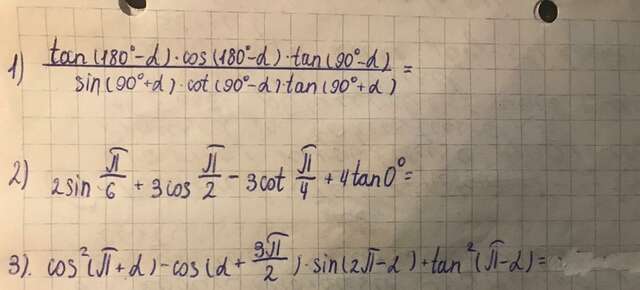 1) tan(180°-α)·cos(180°-α)·tan(90°-α) / sin(90°+α)·cot(90°-α)·tan(90°+α) =
2) 2sin π/6 + 3cos π/2 - 3cot π/4 + 4tan0° =
3). cos²(π+α)-cos(α+ 3π/2)·sin(2π-α)+tan²(π-α)=